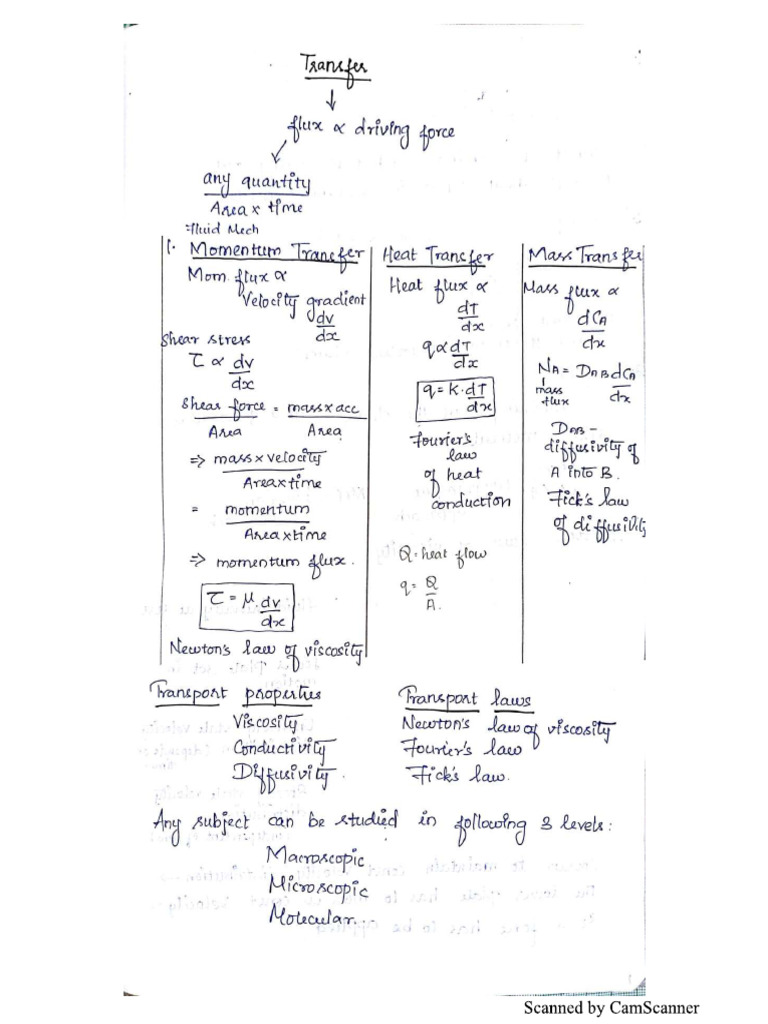 Transfer
↓
flux ∝ driving force
any quantity
Area x time
Fluid Mech
1. Momentum Transfer
Mom. flux ∝
Velocity gradient
dv
dx
Shear stress
τ ∝ dv
dx
Shear force = mass x acc
Area Area
=> mass x velocity
Area x time
= momentum
Area x time
=> momentum flux.
τ = μ. dv
dx
Newton's law of viscosity
Heat Transfer
Heat flux ∝
dT
dx
q ∝ dT
dx
q = K. dT
dx
Fourier's
law
of heat
conduction
Q - heat flow
q = Q
A.
Mass Transfer
Mass flux ∝
dCA
dx
NA = DAB dCA
dx
mass
flux
DAB -
diffusivity of
A into B.
Fick's law
of diffusivity
Transport properties
Viscosity
Conductivity
Diffusivity.
Transport laws
Newton's law of viscosity
Fourier's law
Fick's law.
Any subject can be studied in following 3 levels:
Macroscopic
Microscopic
Molecular...
Scanned by CamScanner